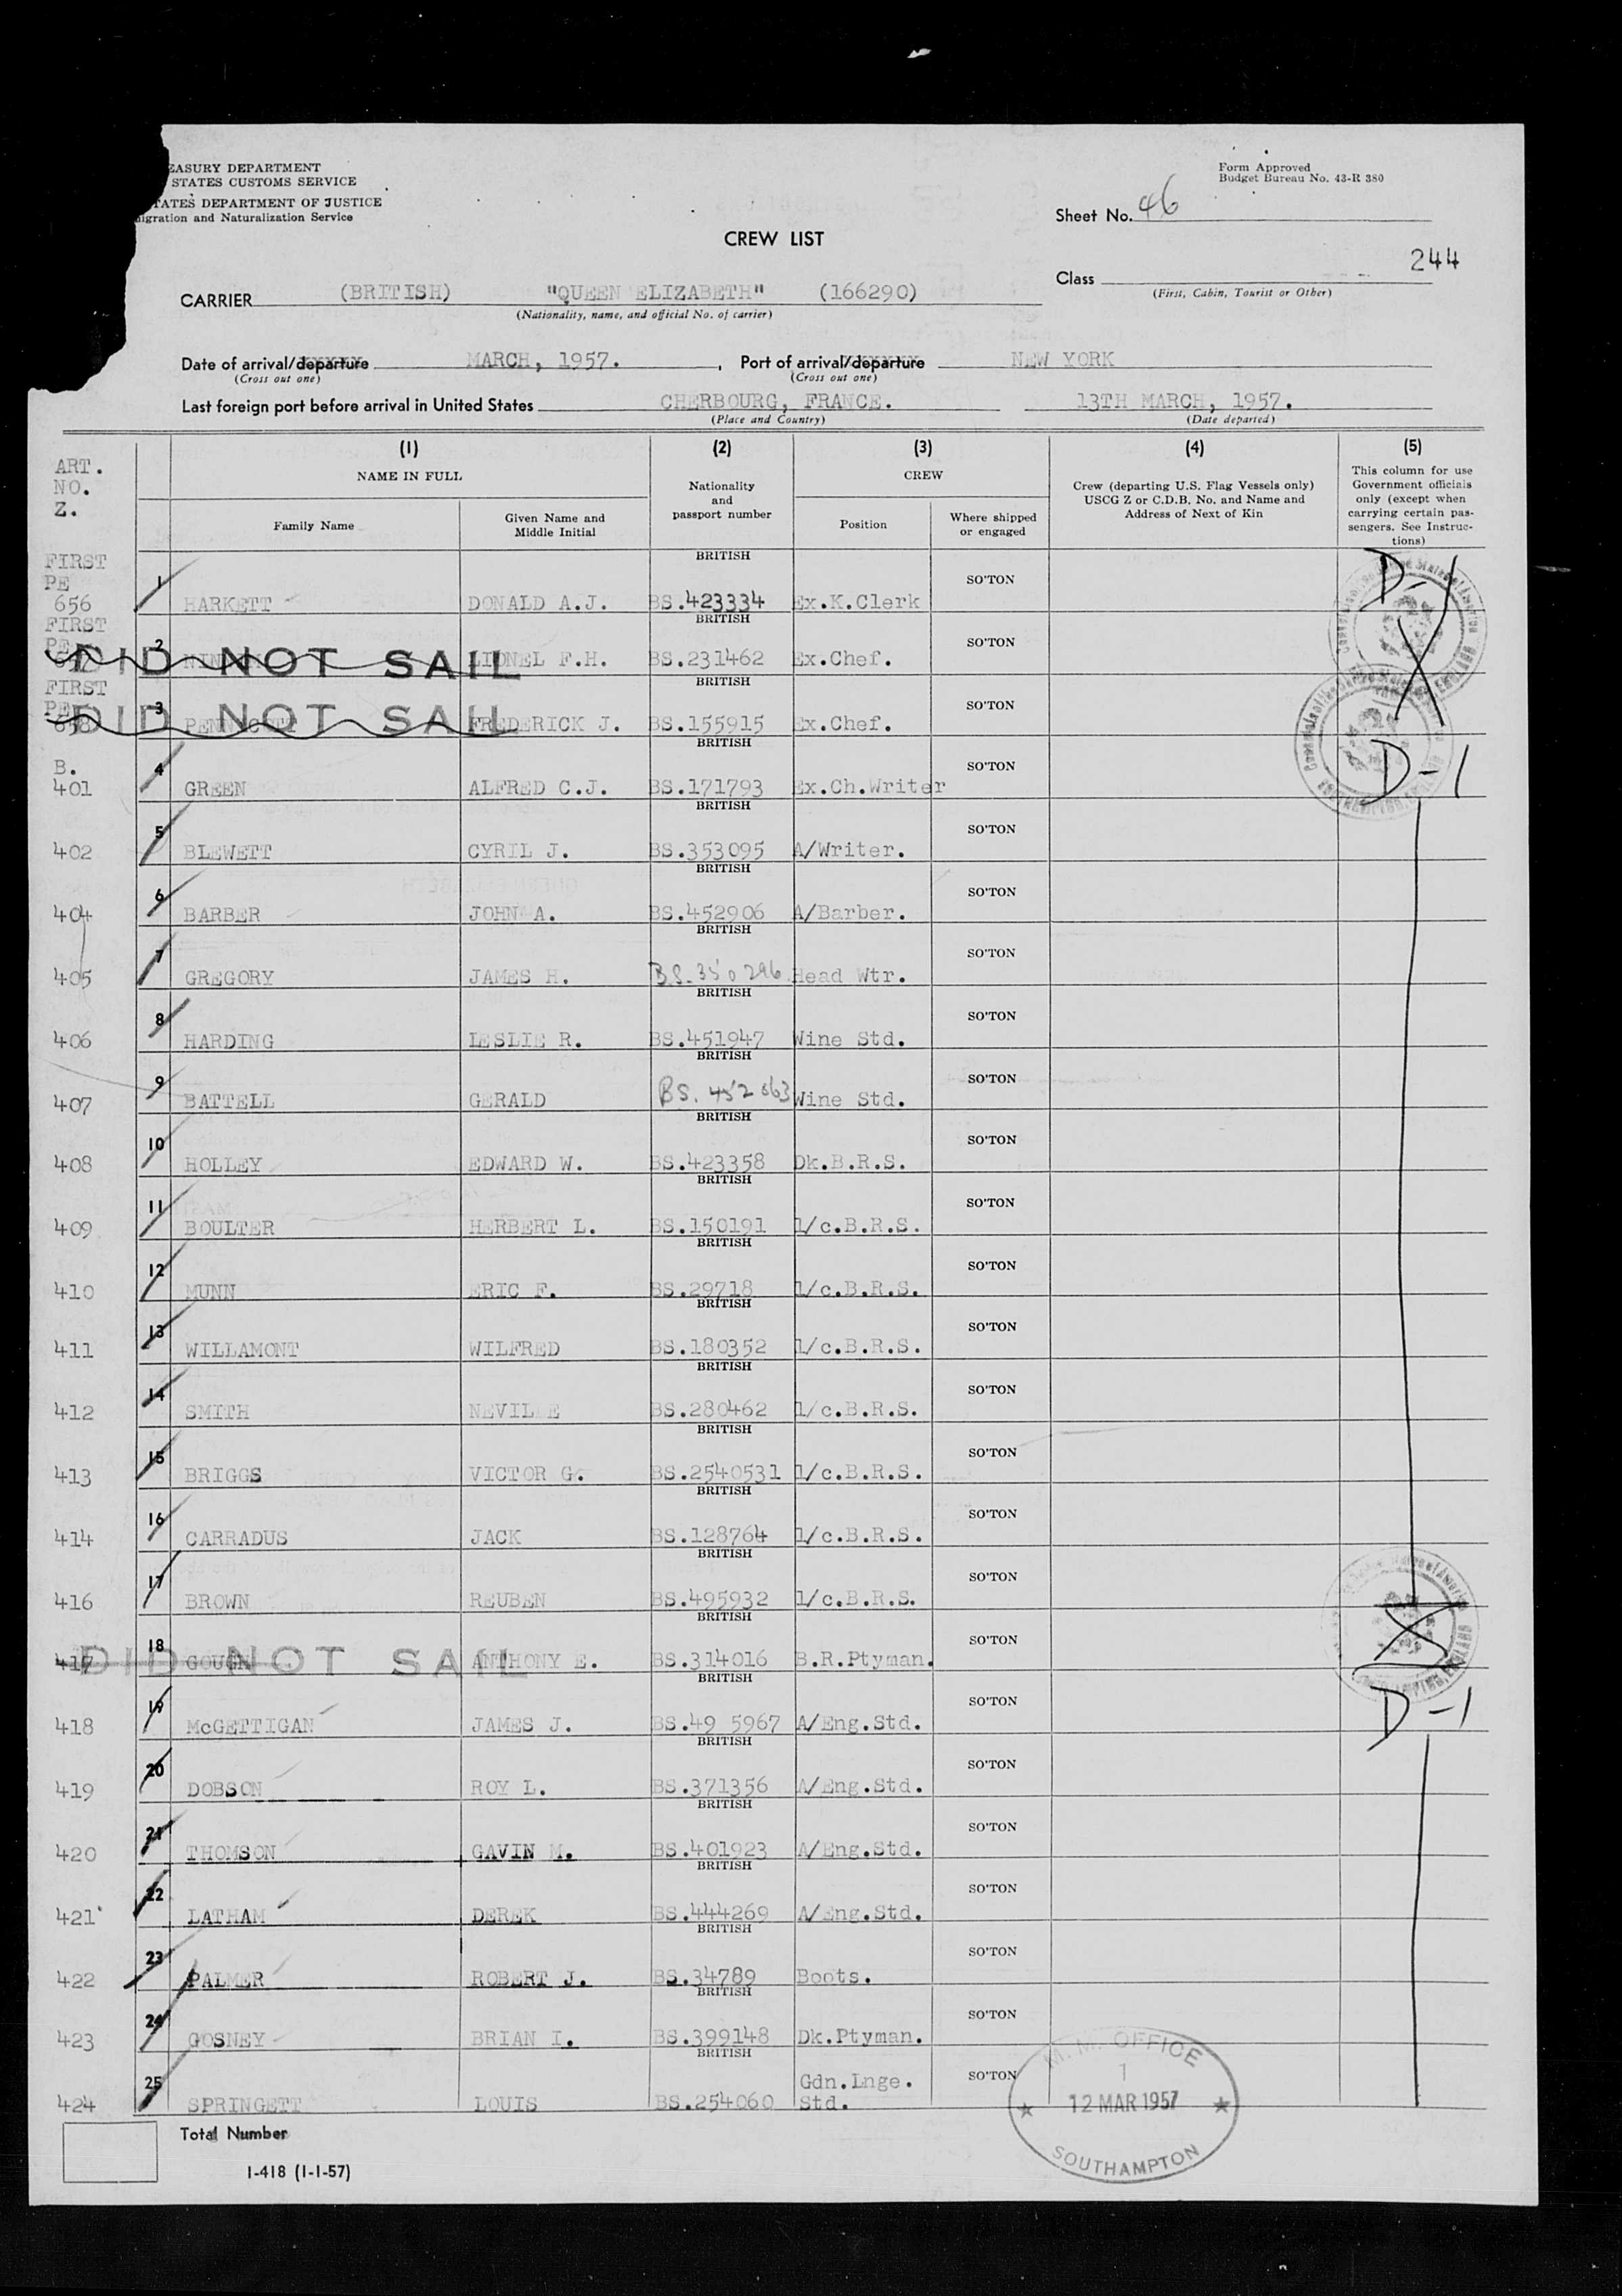 EASURY DEPARTMENT
STATES CUSTOMS SERVICE
TATES DEPARTMENT OF JUSTICE
igration and Naturalization Service
Form Approved
Budget Bureau No. 43-R 380
Sheet No. 46
CREW LIST
244
Class
(First, Cabin, Tourist or Other)
CARRIER (BRITISH) "QUEEN ELIZABETH" (166290)
(Nationality, name, and official No. of carrier)
Date of arrival/departure MARCH, 1957. , Port of arrival/departure NEW YORK
(Cross out one) (Cross out one)
Last foreign port before arrival in United States CHERBOURG, FRANCE. 13TH MARCH, 1957.
(Place and Country) (Date departed)
ART. NO. Z.
(1) NAME IN FULL
Family Name
Given Name and Middle Initial
(2) Nationality and passport number
(3) CREW
Position
Where shipped or engaged
(4) Crew (departing U.S. Flag Vessels only) USCG Z or C.D.B. No. and Name and Address of Next of Kin
(5) This column for use Government officials only (except when carrying certain passengers. See Instructions)
FIRST PE 656 1 HARKETT DONALD A.J. BRITISH BS.423334 Ex.K.Clerk SO'TON D-1
FIRST PE 2 DID NOT SAIL LIONEL F.H. BRITISH BS.231462 Ex.Chef. SO'TON
FIRST PE 658 3 DID NOT SAIL FREDERICK J. BRITISH BS.155915 Ex.Chef. SO'TON
B. 401 4 GREEN ALFRED C.J. BRITISH BS.171793 Ex.Ch.Writer SO'TON D-1
402 5 BLEWETT CYRIL J. BRITISH BS.353095 A/Writer. SO'TON
404 6 BARBER JOHN A. BRITISH BS.452906 A/Barber. SO'TON
405 7 GREGORY JAMES H. BRITISH BS.350296 Head Wtr. SO'TON
406 8 HARDING LESLIE R. BRITISH BS.451947 Wine Std. SO'TON
407 9 BATTELL GERALD BRITISH BS. Wine Std. SO'TON
408 10 HOLLEY EDWARD W. BRITISH BS.423358 Dk.B.R.S. SO'TON
409 11 BOULTER HERBERT L. BRITISH BS.150191 1/c.B.R.S. SO'TON
410 12 MUNN ERIC F. BRITISH BS.29718 1/c.B.R.S. SO'TON
411 13 WILLAMONT WILFRED BRITISH BS.180352 1/c.B.R.S. SO'TON
412 14 SMITH NEVILLE BRITISH BS.280462 1/c.B.R.S. SO'TON
413 15 BRIGGS VICTOR G. BRITISH BS.2540531 1/c.B.R.S. SO'TON
414 16 CARRADUS JACK BRITISH BS.128764 1/c.B.R.S. SO'TON
416 17 BROWN REUBEN BRITISH BS.495932 1/c.B.R.S. SO'TON
417 18 GOUGH DID NOT SAIL ANTHONY E. BRITISH BS.314016 B.R.Ptyman. SO'TON
418 19 McGETTIGAN JAMES J. BRITISH BS.49 5967 A/Eng.Std. SO'TON D-1
419 20 DOBSON ROY L. BRITISH BS.371356 A/Eng.Std. SO'TON
420 21 THOMSON GAVIN M. BRITISH BS.401923 A/Eng.Std. SO'TON
421 22 LATHAM DEREK BRITISH BS.444269 A/Eng.Std. SO'TON
422 23 PALMER ROBERT J. BRITISH BS.34789 Boots. SO'TON
423 24 GOSNEY BRIAN I. BRITISH BS.399148 Dk.Ptyman. SO'TON
424 25 SPRINGETT LOUIS BRITISH BS.254060 Gdn.Lnge. Std. SO'TON
M.M. OFFICE
1
12 MAR 1957
SOUTHAMPTON
Total Number
I-418 (1-1-57)